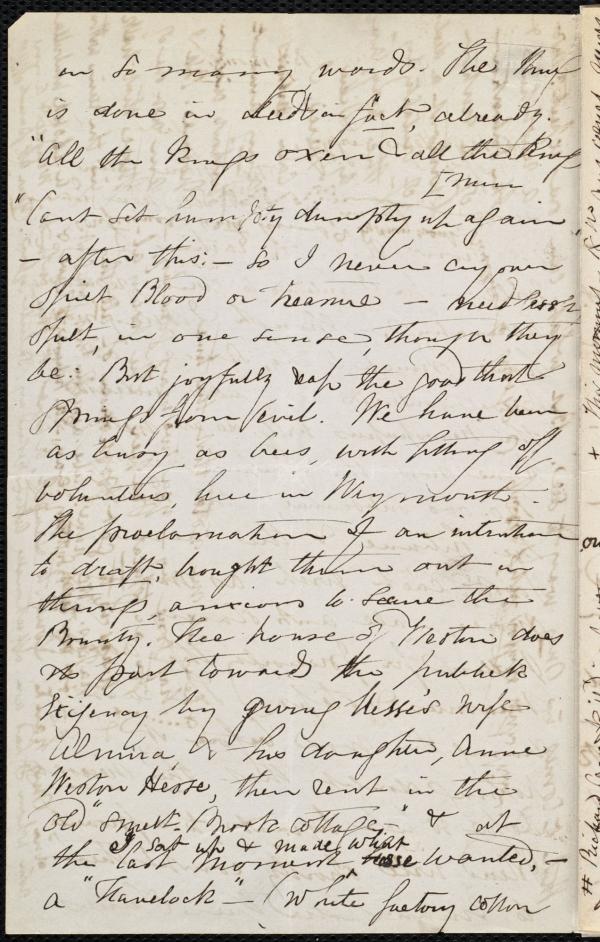 in so many words. The thing
is done in deeds in fact, already.
"All the Kings oxen & all the Kings
men
"Cant set humpty dumpty up again"
— after this: — So I never cry over
spilt Blood or treasure — needlessly
spilt, in one sense, though they
be: But joyfully reap the good that
springs from evil. We have been
as busy as bees, with fitting off
volunteers, here in Weymouth.
The proclamation of an intention
to draft, brought them out in
throngs, anxious to secure the
Bounty. The house of Weston does
its part towards the publick
Exigency by giving Hesse's wife
Almira, & his daughter, Anne
Weston Hesse, their rent in the
old "Smelt-Brook cottage" — & at
the last moment I sat up & made what Hesse wanted, —
a "Havelock" — (White factory cotton